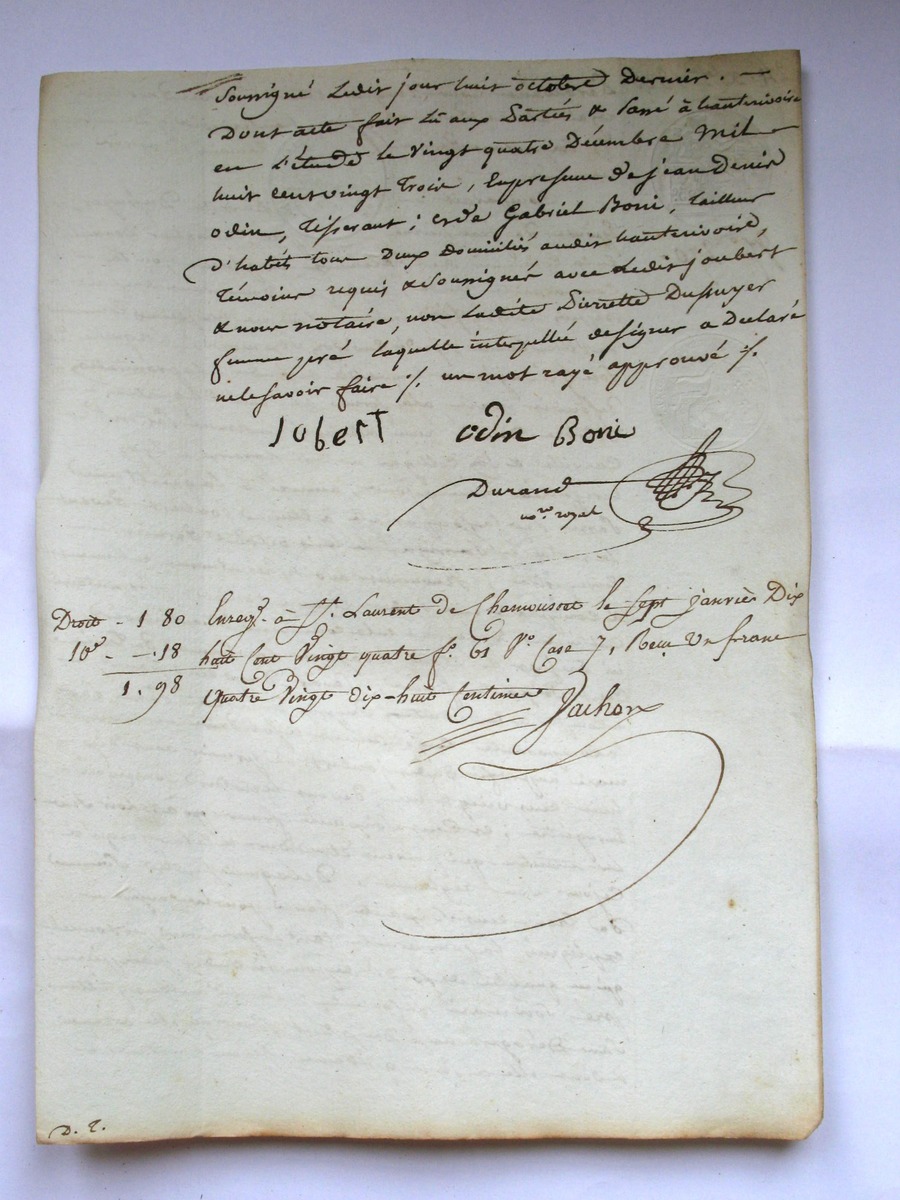 soussigné Ledit jour huit octobre Dernier. —
Dont acte fait Lu aux Parties & Passé à hauterivoire
en L'étude le vingt quatre Décembre Mil
huit cent vingt trois, En presence de jean Denis
odin, Tisserant; et de Gabriel Boni, Tailleur
D'habits tous Deux domiciliés audit hauterivoire,
Témoins requis & soussignés avec Ledit joubert
& nous notaire, non Ladite Pierrette Dussuyer
femme laquelle interpellée de signer a Déclaré
ne le savoir faire ./. un mot rayé approuvé ./.
Jobert odin Boni
Durand
n.re royal
Droit - 1 80 Enreg. à St. Laurent de Chamousset le Sept janvier Dix
10.e - -.18 huit Cent Vingt quatre f.o 61 V.o Case 7, Reçu Un franc
1. 98 Quatre Vingt dix-huit Centimes
D. T.